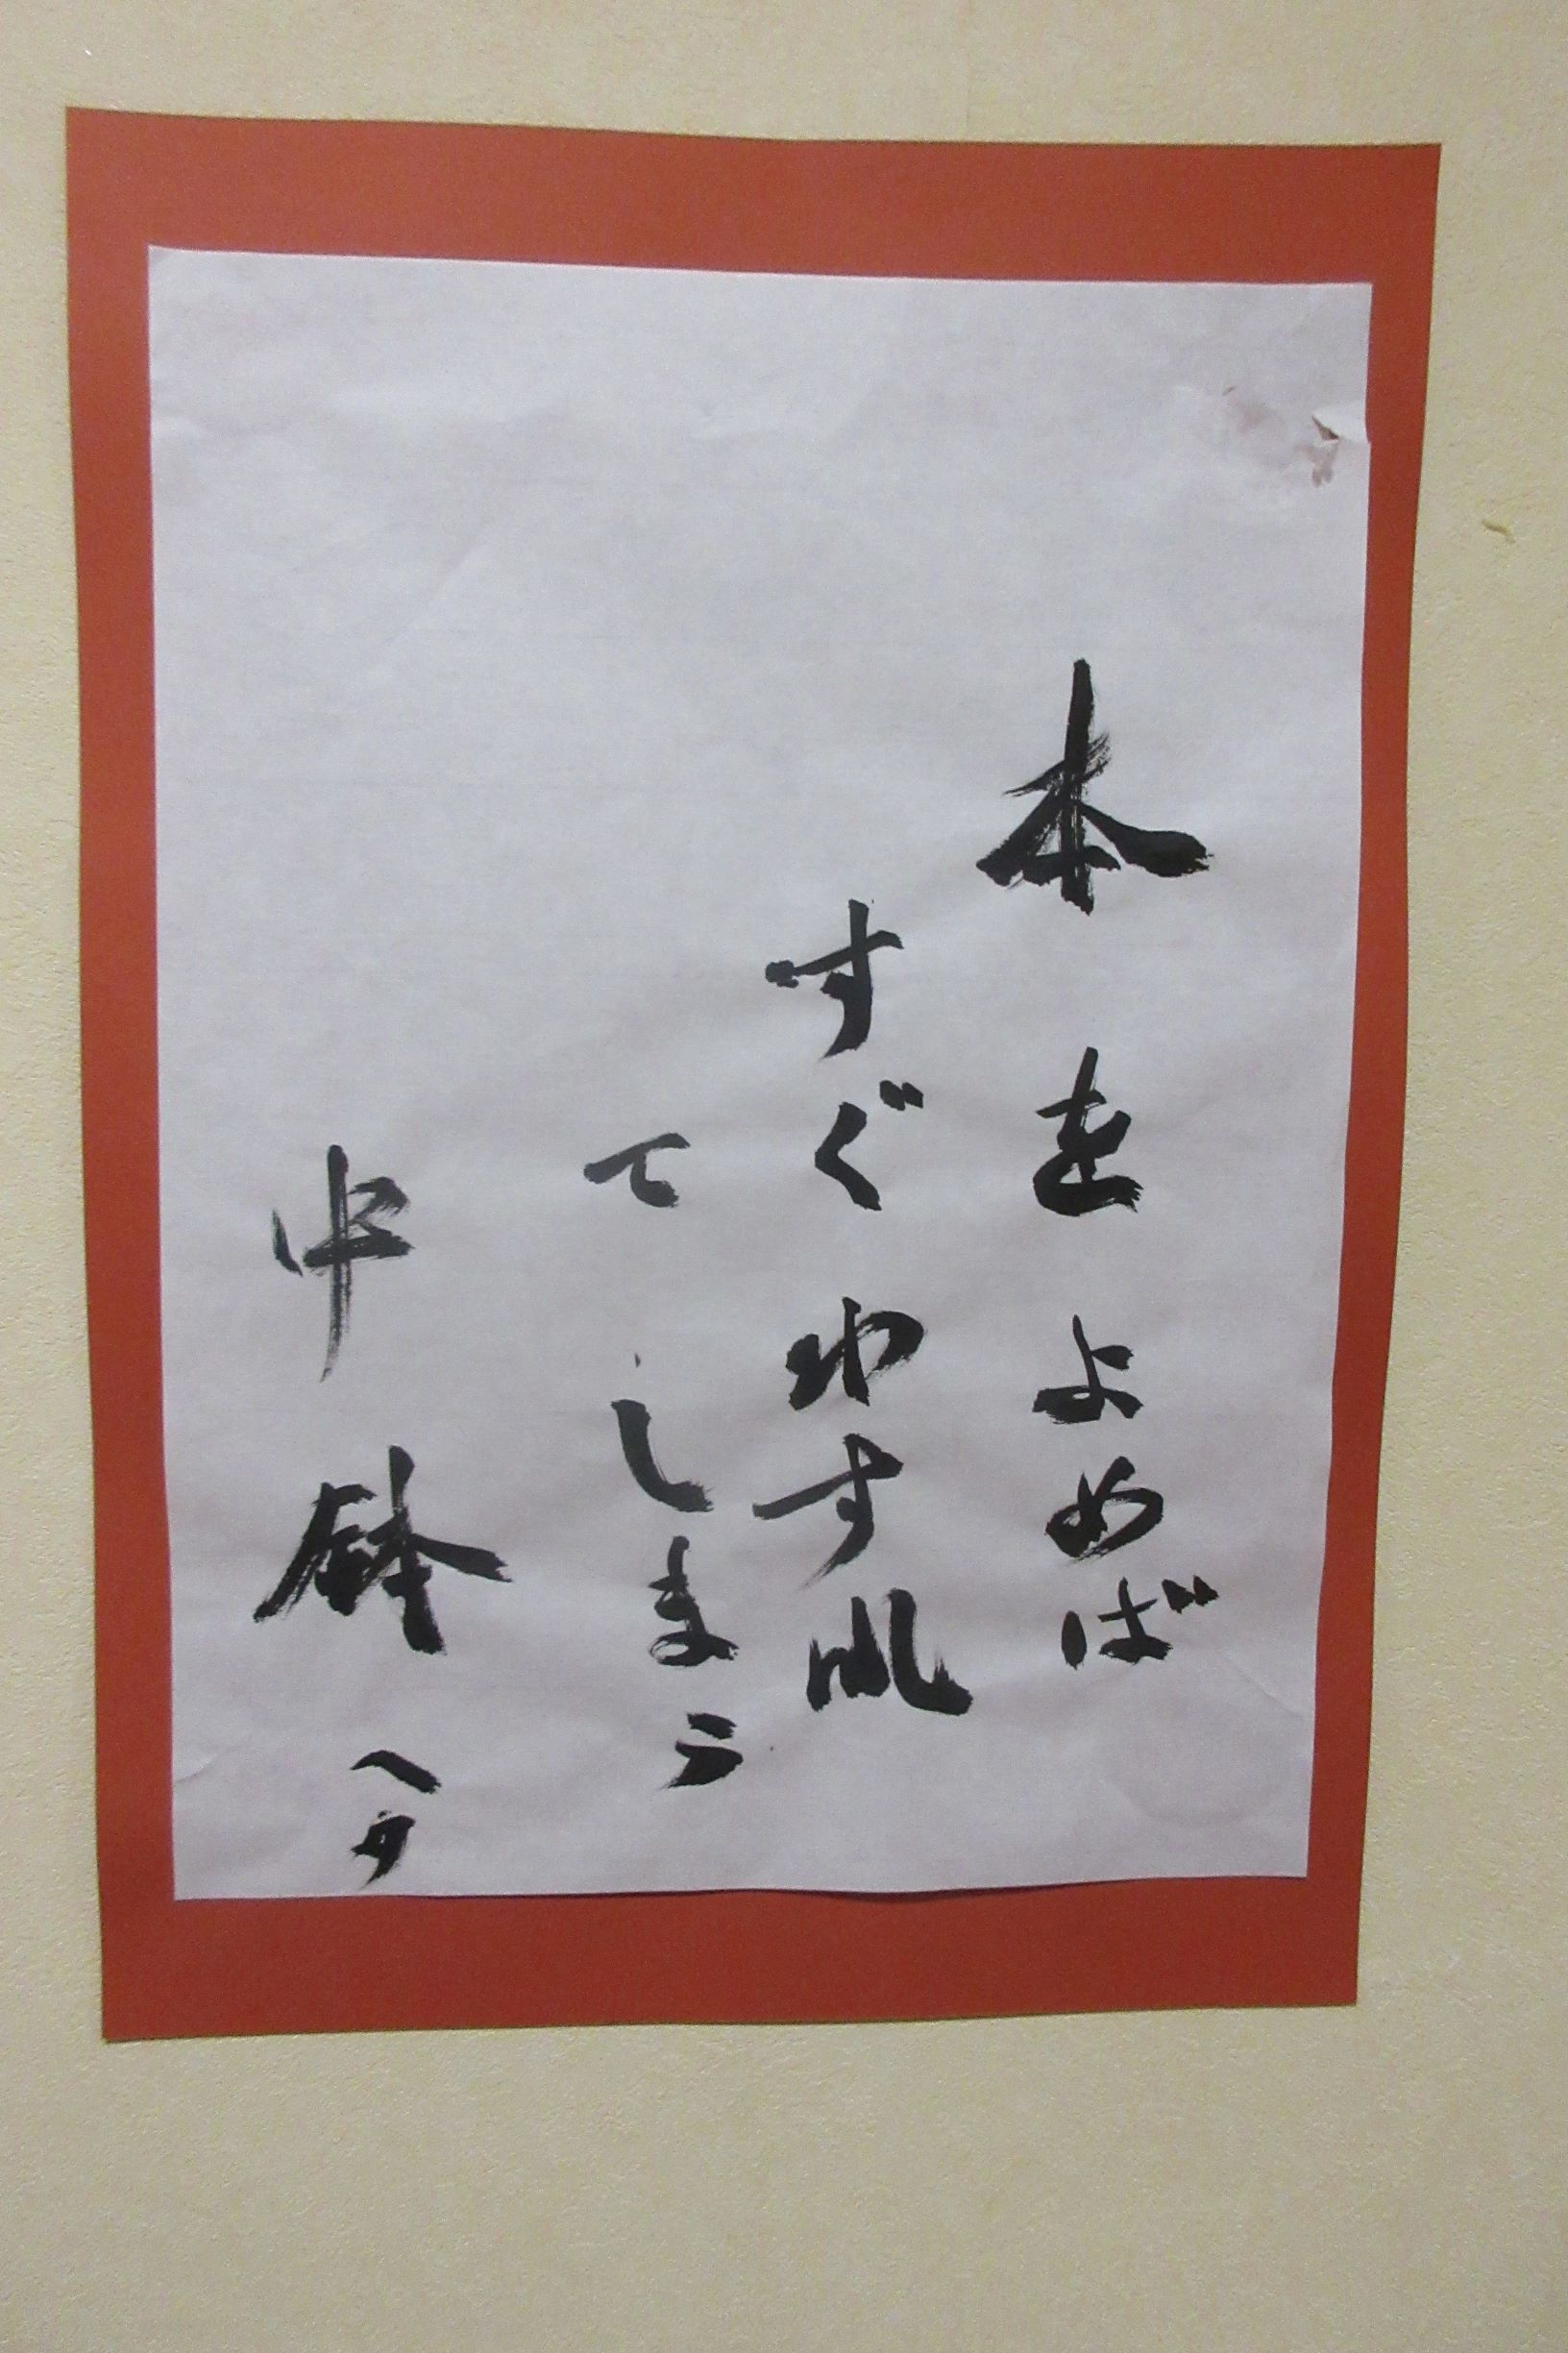 本をよめば
すぐわすれ
てしまう
中鉢